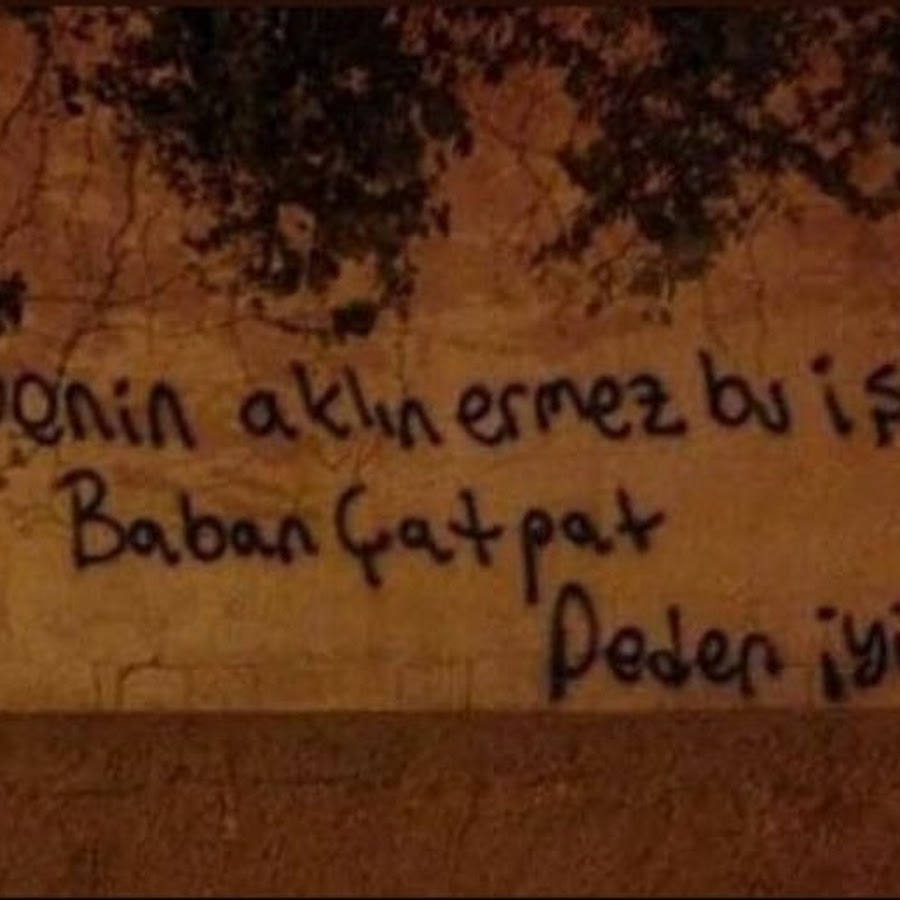 senin aklın ermez bu iş
Baban Çat pat
Deden iyi